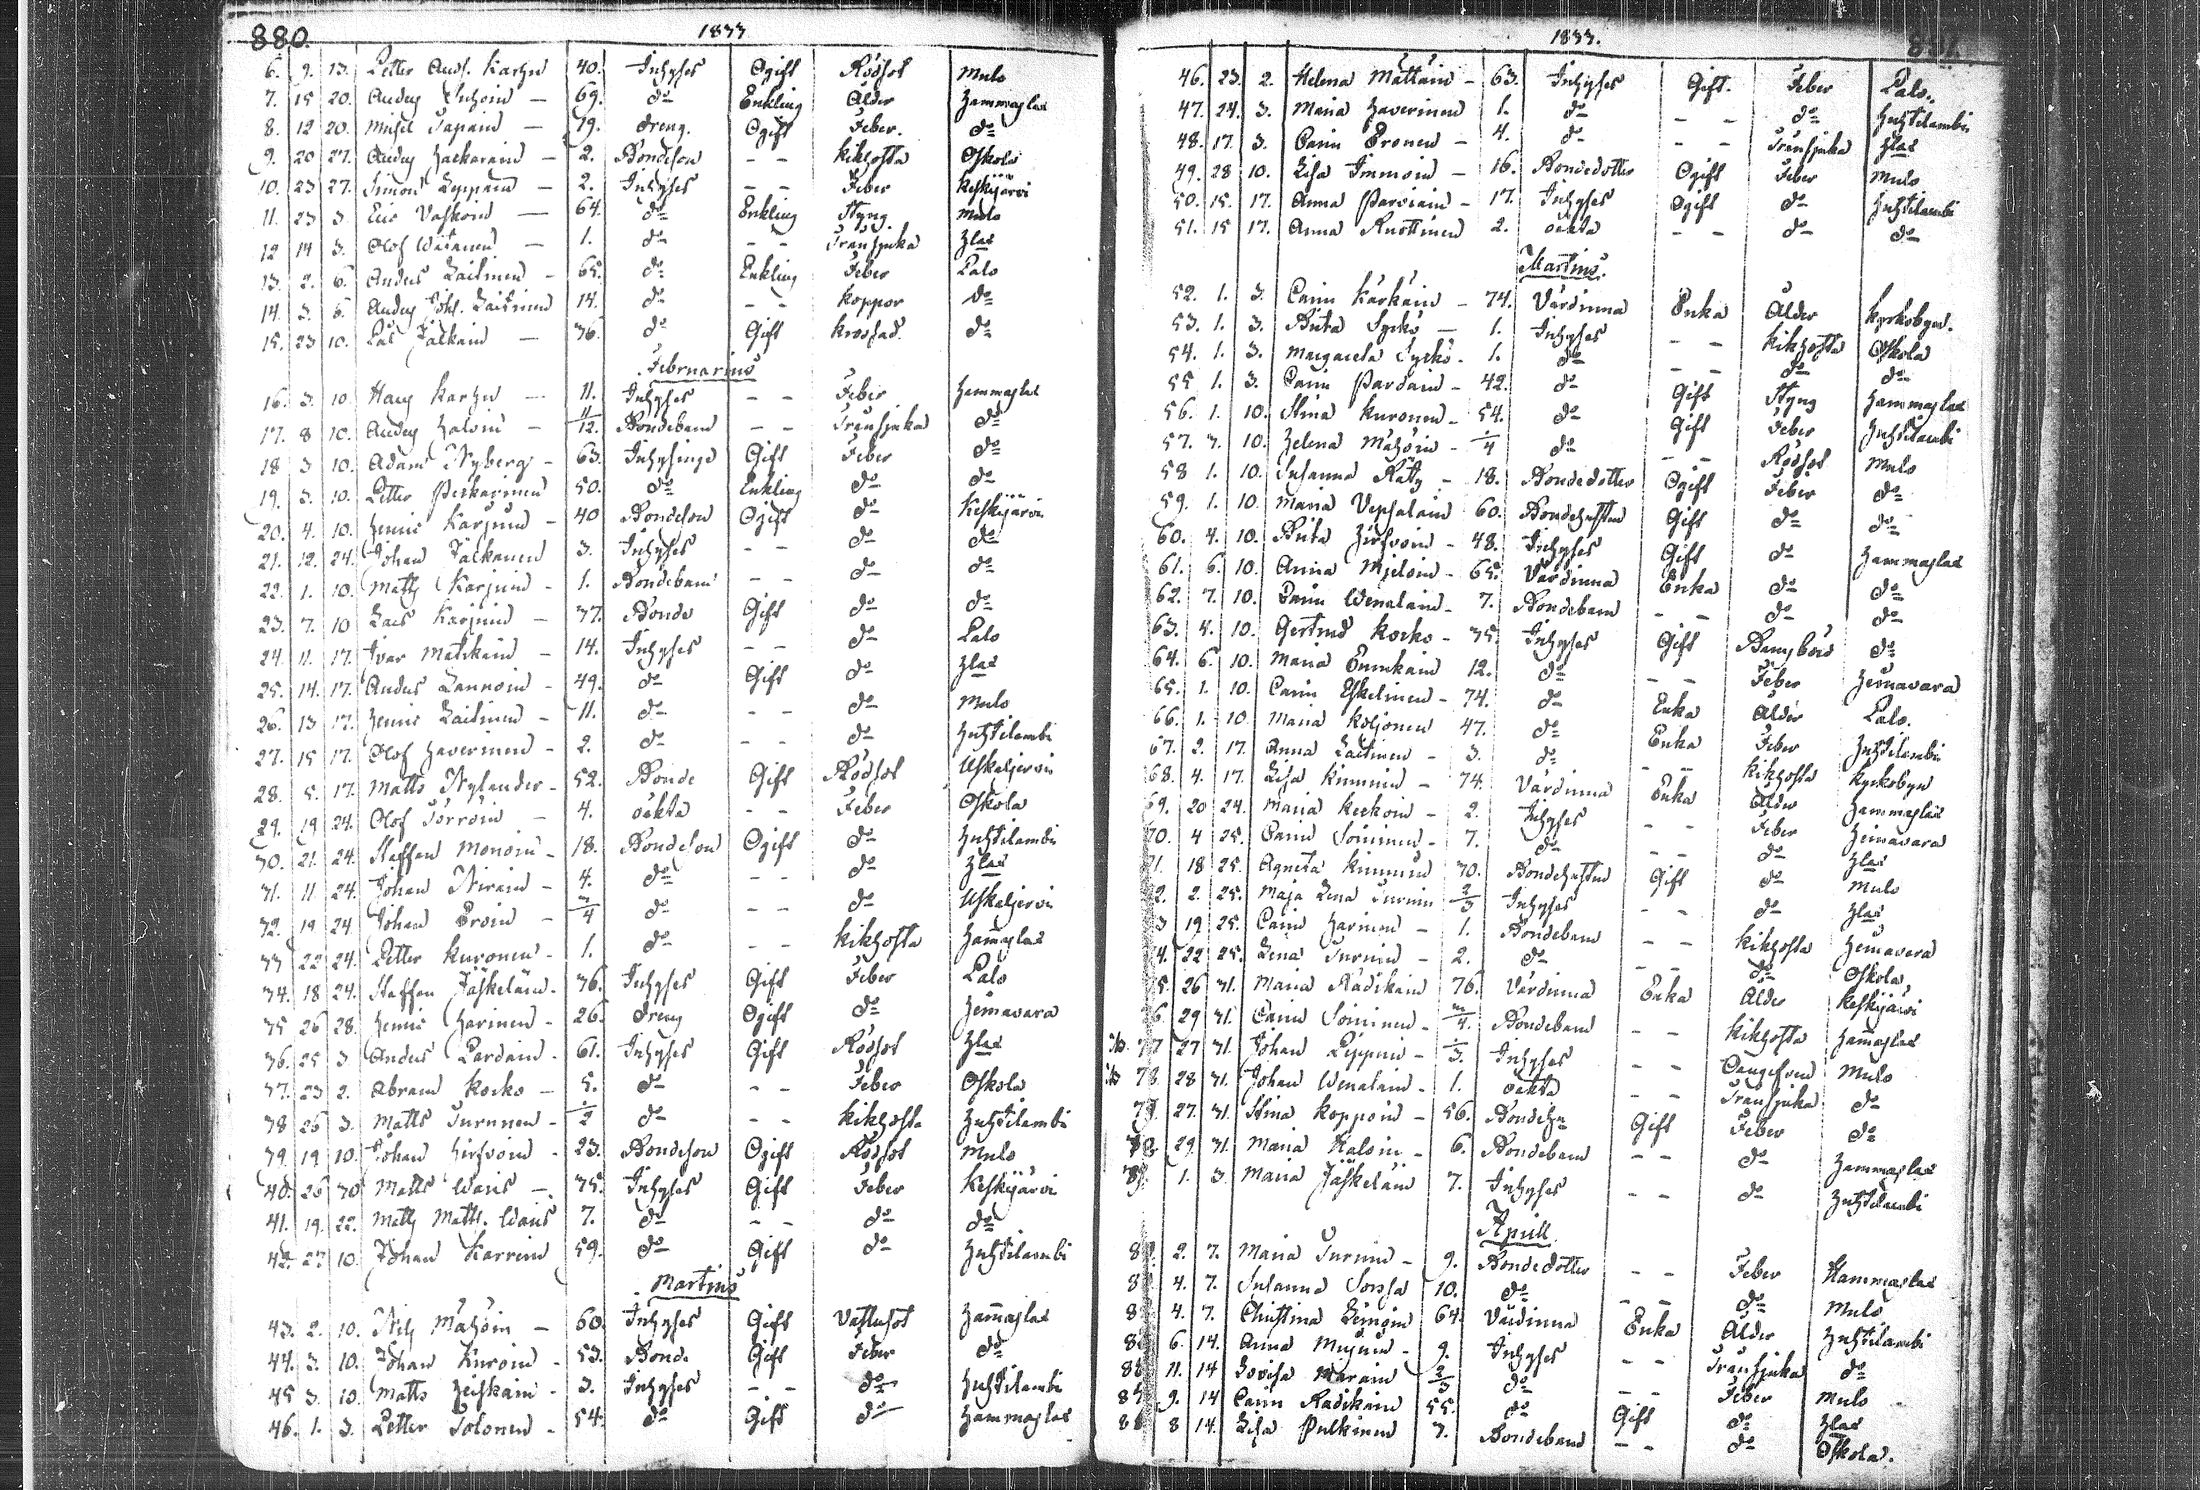 880.
1833
6. 9. 13. Petter And. Karhu 40. Inhyses Ogift Rödsot Mulo
7. 15 20. Anders 69. do Enkling Ålder Hammaslax
8. 12 20. Michel Tapain 19. dreng. Ogift Feber. do
9. 20 27. Anders Zackarain 2. Bondeson - - kikhosta Oskola
10. 23 27. Simon Leppain 2. Inhyses - - Feber Keskijärvi
11. 23 3. Eric Vaskoin 64. do Enkling Styng. Mulo
12 14 3. Olof Wätanen 1. do - - Trånsjuka Hlax
13. 2. 6. Anders Laitinen 65. do Enkling Feber Palo
14. 3. 6. Anders Joh. Laitinen 14. do - - koppor do
15. 23 10. Lars Jalkain 36. do Gift krossad. do
Februarius
16. 3. 10. Hans Karhu 11. Inhyses - - Feber Hammaslax
17. 8 10. Anders Halvin 11/12. Bondebarn - - Trånsjuka do
18 3 10. Adam Nyberg 63. Inhysinge Gift Feber do
19. 3. 10. Petter Peskarinen 50. do Enkling do do
20. 4. 10. Henric Karjuin 40 Bondeson Ogift do Keskijärvi
21. 12. 24. Johan Jalkanen 3. Inhyses - - do do
22. 1. 10. Matts Karjuin 1. Bondebarn - - do do
23. 7. 10 Lars Karjuin 77. Bonde Gift do do
24 11. 17. Ivar Matikain 14. Inhyses - - do Palo
25. 14. 17. Anders Lannoin 49. do Gift do Hlax
26 13 17. Henric Laitinen 11. do - - do Mulo
27. 15 17. Olof Haverinen 2. do - - do Huhtilambi
28. 5. 17. Matts Nylander 52. Bonde Gift Rödsot Uskaljervi
29. 19 24. Olof Törröin 4. oäkta - - Feber Oskola
30. 21. 24. Staffan Mononin 18. Bondeson Ogift do Huhtilambi
31. 11 24. Johan Nirain 4. do - - do Hlax
32. 19 24 Johan Eroin 3/4 do - - do Uskaljervi
33 22 24. Petter Kuronen 1. do - - kikhosta Hamaslax
34. 18 24. Staffan Jäskeläin 36. Inhyses Gift Feber Palo
35 26 28. Henric Harinen 26. dreng Ogift do Heinavara
36. 25 3 Anders Pardain 61. Inhyses Gift Rödsot Hlax
37. 23 2. Abram Korko 5. do - - Feber Oskola
38 26 3. Matts Turunen 1/2 do - - kikhosta Huhtilambi
39. 19 10. Johan Hirfvoin 23. Bondeson Ogift Rödsot Mulo
40. 26 30 Matts Waris 75. Inhyses Gift Feber Keskijärvi
41. 19. 22. Matts Matts. Waris 7. do - - do do
42. 27. 10. Johan Karvein 59. do Gift do Huhtilambi
Martius
43. 2. 10. Nils Mähöin 60. Inhyses Gift Vattusot Hamaslax
44. 3. 10. Johan Kuroin 53. Bonde Gift Feber do
45 3. 10. Matts Heiskain 3. Inhyses - - do Huhtilambi
46. 1. 3. Petter Tolonen 54. do Gift do Hammaslax
1833.
881.
46. 23. 2. Helena Mattain 63. Inhyses Gift. Feber Palo.
47. 24. 3. Maria Haverinen 1. do - - do Huhtilambi
48. 17. 3. Carin Eronen 4. do - - Trånsjuka Hlax
49. 28 10. Lisa Immoin 16. Bondedotter Ogift Feber Mulo
50. 15. 17. Anna Parviain 17. Inhyses Ogift do Huhtilambi
51. 15 17. Anna Knuttinen 2. oäkta - - do do
Martius.
52. 1. 3. Carin Kärkäin 74. Värdinna Enka Ålder Kyrkobyn.
53. 1. 3. Brita Syrkö 1. Inhyses - - kikhosta Oskola
54. 1. 3. Margareta Syrkö 1. do - - do do
55 1. 3. Carin Pardain 42. do Gift Styng Hammaslax
56. 1. 10. Stina Kuronen 54. do Gift Feber Huhtilambi
57. 7. 10. Helena Mähöin 1/4 do - - Rödsot Mulo
58 1. 10. Susanna Räty 18. Bondedotter Ogift Feber do
59. 1. 10. Maria Vepsäläin 60. Bondehustru Gift do do
60. 4. 10. Brita Hirfvoin 48. Inhyses Gift do Hammaslax
61. 6. 10. Anna Mieloin 65. Värdinna Enka do do
62. 7. 10. Carin Wenäläin 7. Bondebarn - - do do
63. 4. 10. Gertrud Korko 35. Inhyses Gift Barnsbörd do
64. 6. 10. Maria Ennikain 12. do - - Feber Heinavara
65. 1. 10. Carin Eskelinen 74. do Enka Ålder Palo.
66. 1. 10. Maria Koljonen 47. do Enka Feber Huhtilambi
67. 2. 17. Anna Laitinen 3. do - - kikhosta Kyrkobyn
68. 4. 17. Lisa Kinnunen 74. Värdinna Enka Ålder Hammaslax
69. 20 24. Maria Keckoin 2. Inhyses - - Feber Heinavara
70. 4 25. Carin Soininen 7. do - - do Hlax
71. 18 25. Agneta Kinnunen 70. Bondehustru Gift do Mulo
2. 2. 25. Maja Lena Turunin 2/3 Inhyses - - do Hlax
3 19 25. Carin Harinen 1. Bondebarn - - kikhosta Heinavara
4. 22 25. Lena Turunin 2. do - - do Oskola
5. 26 31. Maria Rädikäin 76. Värdinna Enka Ålder Keskijärvi
6. 29 31. Carin Soininen 3/4. Bondebarn - - kikhosta Hamaslax
77 27 31. Johan Leppäin 1/3. Inhyses - - Oangifven Mulo
78. 28 31. Johan Wenäläin 1. oäkta - - Trånsjuka do
79. 27. 31. Stina Koppoin 56. Bondehu Gift Feber do
29. 31. Maria Haloin 6. Bondebarn - - do Hammaslax
1. 3. Maria Jäskeläin 7. Inhyses - - do Huhtilambi
Aprill.
2. 7. Maria Turunin 9. Bondedotter - - Feber Hammaslax
4. 7. Susanna Sorsa 10. do - - do Mulo
4. 7. Christina Leinoin 64. Värdinna Enka Ålder Huhtilambi
6. 14. Anna Mujuin 9. Inhyses - - Trånsjuka do
11. 14 Lovisa Marain 2/3 do - - Feber Mulo
9. 14 Carin Rädikäin 55. do Gift do Hlax
8 14. Lisa Pulkinen 7. Bondebarn - - do Oskola.